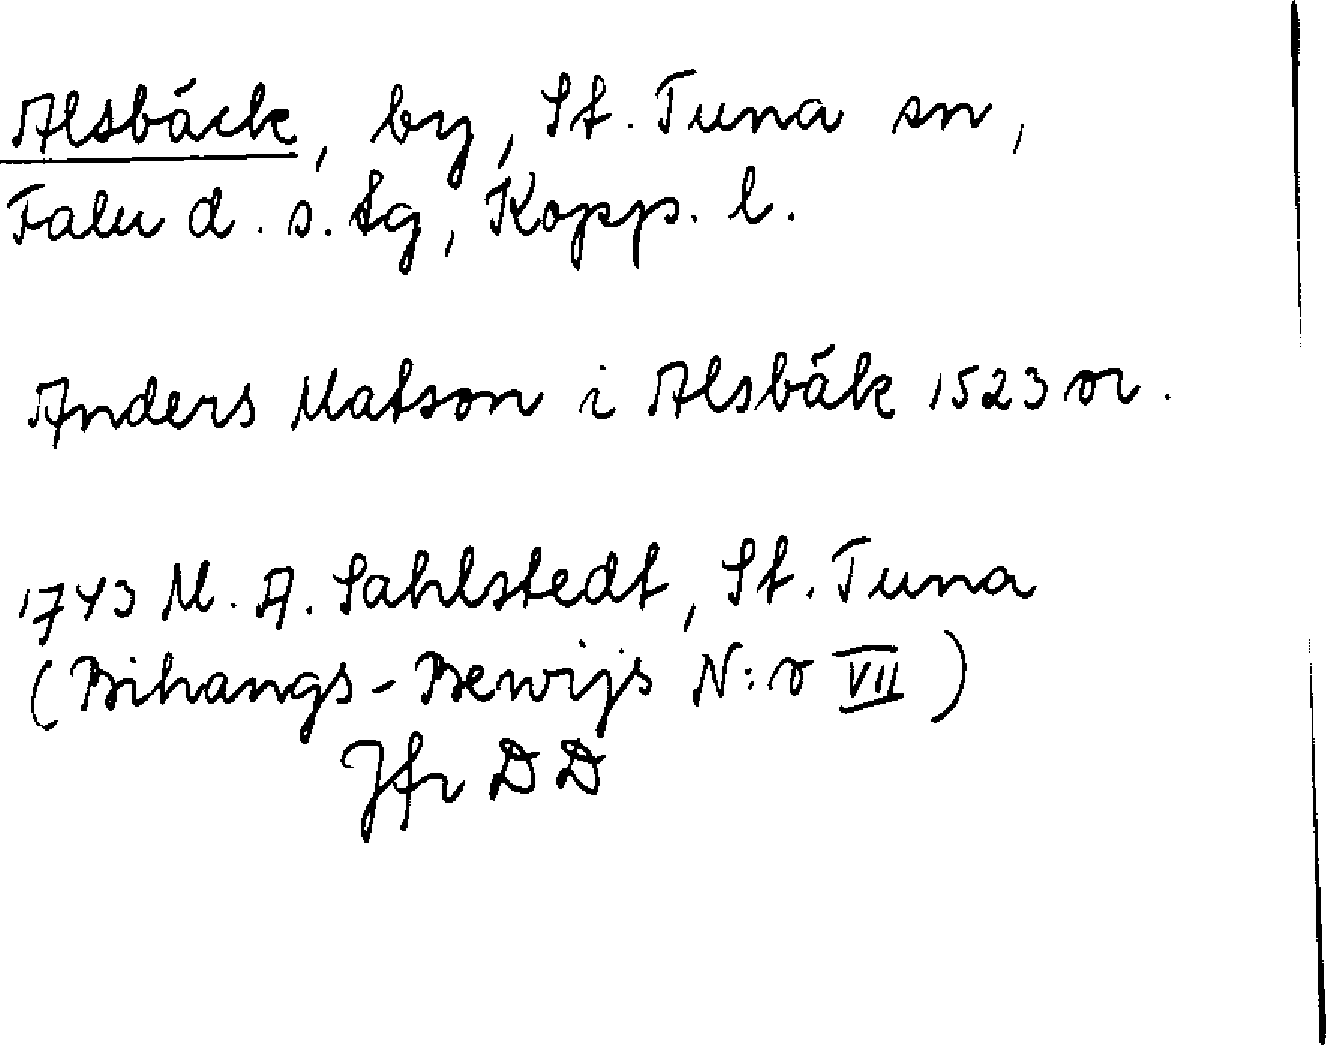 Alsbäck, by, St. Tuna sn,
Falu d. s. tg, Kopp. l.
Anders Matson i Alsbäk 1523 or.
1743 M. A. Sahlstedt, St. Tuna
(Bihangs-Bewijs N:o VII)
Jfr DD